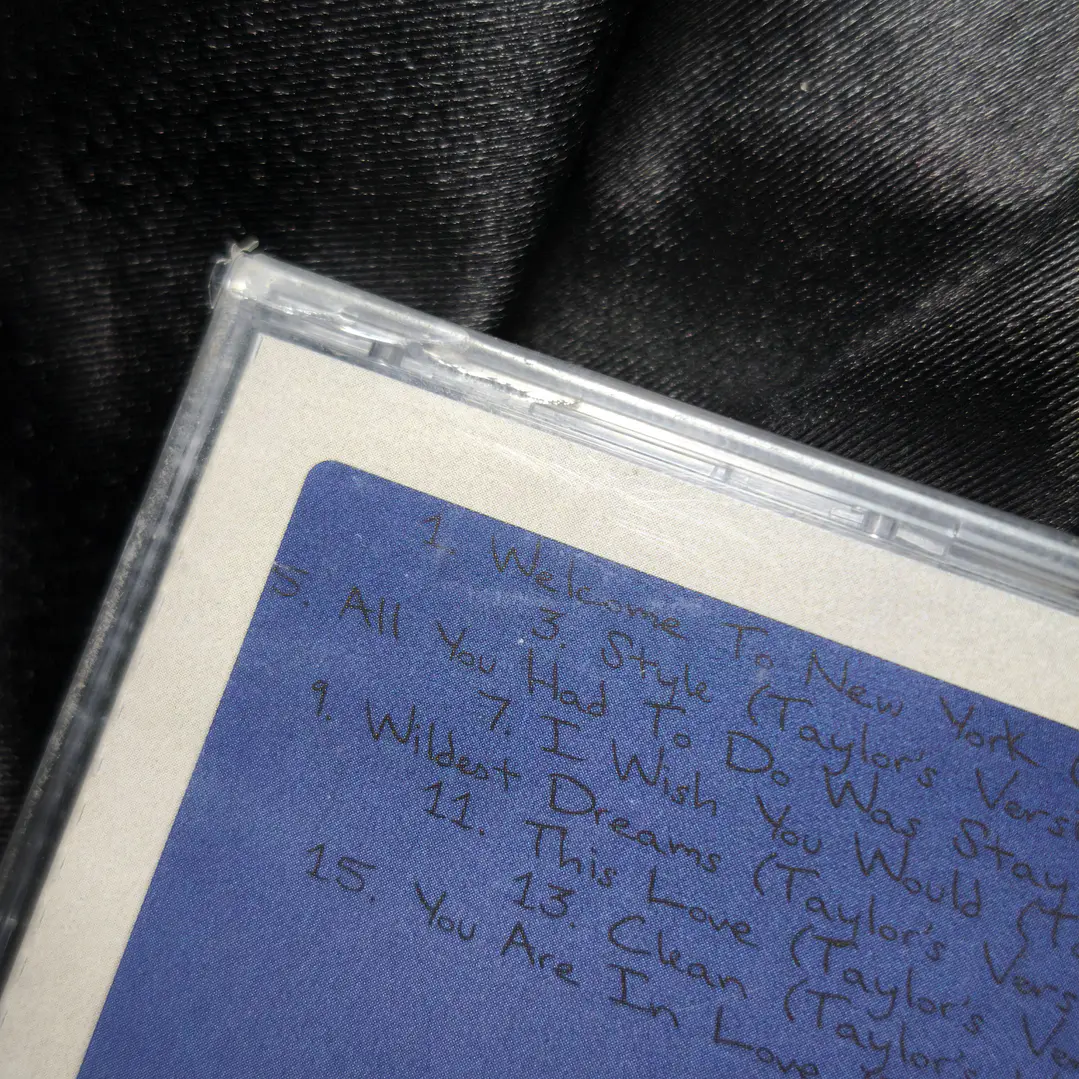 1. Welcome To New York (
3. Style (Taylor's Vers
5. All You Had To Do Was Stay
7. I Wish You Would (Ta
9. Wildest Dreams (Taylor's Vers
11. This Love (Taylor's Ver
13. Clean (Taylor's
15. You Are In Love